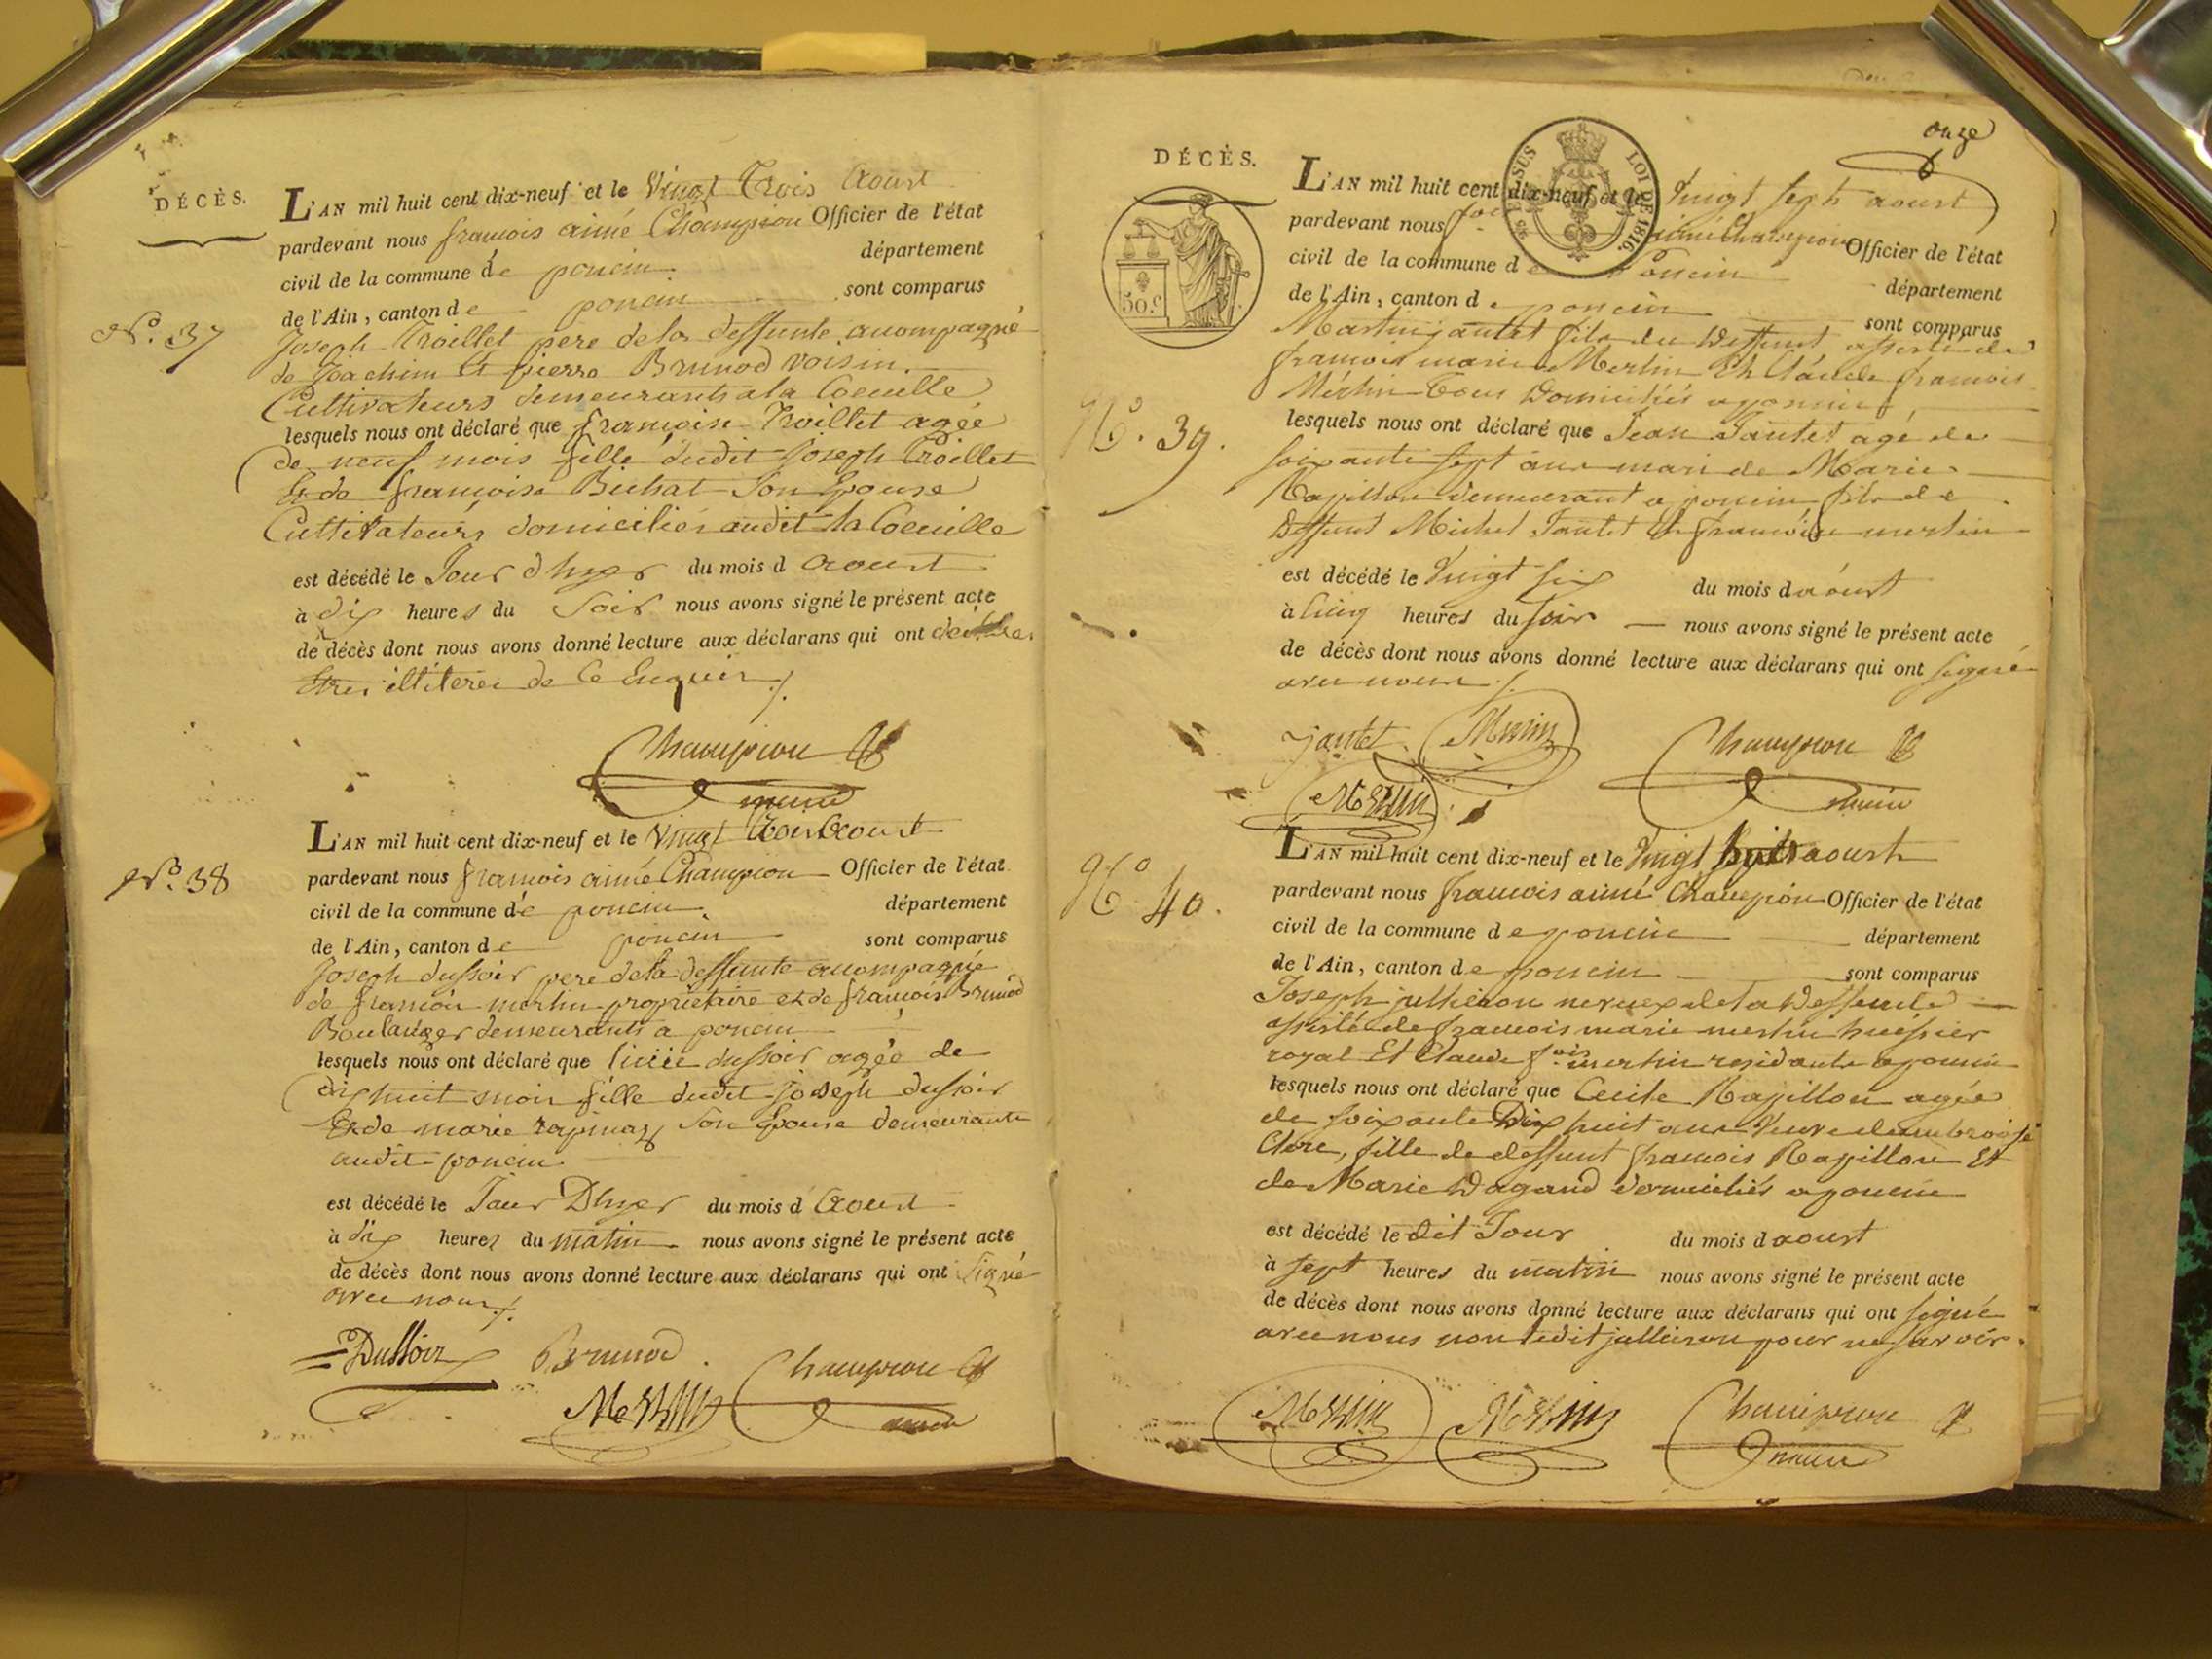 DÉCÈS.
L'AN mil huit cent dix-neuf et le Vingt Trois Aoust
pardevant nous francois aimé Champion Officier de l'état
civil de la commune de poncin département
de l'Ain, canton de poncin sont comparus
N.o 37
Joseph Troillet pere de la deffunte acompagné
de Joachim Et pierre Brunod voisin
Cultivateurs demeurants a la Coeuille
lesquels nous ont déclaré que francoise Troillet agée
de neuf mois fille dudit Joseph Troillet
Et de francoise Bichat Son Epouse
Cultivateurs domiciliés audit la Coeuille
est décédé le Jour dhyer du mois d Aoust
à dix heures du Soir nous avons signé le présent acte
de décès dont nous avons donné lecture aux déclarans qui ont
illiterés de Ce Enquis ./.
Champion
maire
N.o 38
L'AN mil huit cent dix-neuf et le Vingt Trois Aoust
pardevant nous francois aimé Champion Officier de l'état
civil de la commune de poncin département
de l'Ain, canton de poncin sont comparus
Joseph dussoir pere de la deffunte acompagné
de francois merlin proprietaire et de francois Brunod
Boulanger demeurants a poncin
lesquels nous ont déclaré que dussoir agée de
dix huit mois fille dudit joseph dussoir
Et de marie rapinaz Son Epouse demeurants
audit poncin
est décédé le Jour Dhyer du mois d Aoust
à dix heures du matin nous avons signé le présent acte
de décès dont nous avons donné lecture aux déclarans qui ont Signé
avec nous ./.
Dussoir Brunod Champion
Merlin maire
onze
DÉCÈS.
50.c
ES.SUS LOI DE 1816.
L'AN mil huit cent dix-neuf et le Vingt Sept aoust
pardevant nous aimé Champion Officier de l'état
civil de la commune de Poncin département
de l'Ain, canton de poncin sont comparus
N.o 39.
Martin jantet fils du Deffunt assisté de
francois marie Merlin Et Claude francois
Merlin tous Domiciliés a poncin
lesquels nous ont déclaré que Jean Jantet agé de
soixante sept ans mari de Marie
Rapillon demeurant a poncin fils de
Deffunt Michel Jantet Et francoise merlin
est décédé le Vingt six du mois daoust
à Cinq heures du soir nous avons signé le présent acte
de décès dont nous avons donné lecture aux déclarans qui ont signé
avec nous ./.
Jantet Merlin Champion
Merlin maire
N.o 40.
L'AN mil huit cent dix-neuf et le Vingt huit aoust
pardevant nous francois aimé Champion Officier de l'état
civil de la commune de poncin département
de l'Ain, canton de poncin sont comparus
Joseph jullieron neveux de la Deffunte
assisté de francois marie merlin huissier
royal Et Claude f.ois merlin residants a poncin
lesquels nous ont déclaré que Cecile Rapillon agée
de soixante Dix huit ans Veuve dambroise
Clere, fille de deffunt francois Rapillon Et
de Marie Dagand domiciliés a poncin
est décédé le dit Jour du mois daoust
à sept heures du matin nous avons signé le présent acte
de décès dont nous avons donné lecture aux déclarans qui ont signé
avec nous non ledit jullieron pour ne savoir.
Merlin Merlin Champion
maire